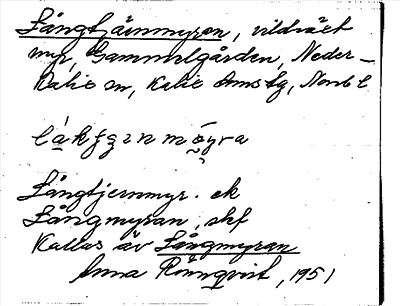 Långtjärnmyren, vildväxt
myr, Gammelgården, Neder-
Kalix sn, Kalix domsfg, Norrb l
Långtjernmyr. ek
Långmyran, shf
Kallas äv Långmyran
Anna Rönnqvist, 1951